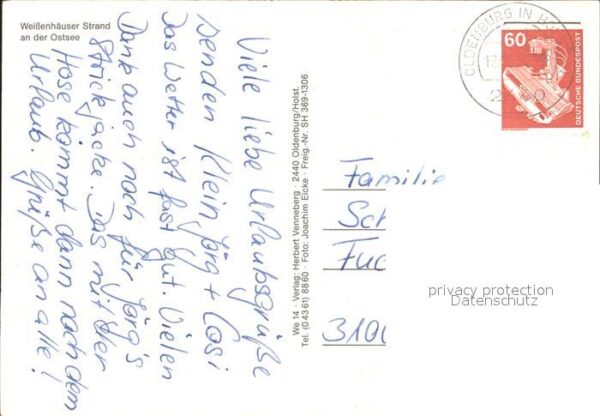 Weißenhäuser Strand
an der Ostsee
Viele liebe Urlaubsgrüße
senden Klein Jörg + Cosi
Das Wetter ist fast gut. Vielen
Dank auch noch für Jörg's
Strickjacke. Das mit der
Hose kommt dann nach dem
Urlaub. Grüße an alle!
We 14 · Verlag: Herbert Venneberg · 2440 Oldenburg/Holst.
Tel. (0 43 61) 88 60 · Foto: Joachim Eicke · Freig.-Nr. SH 369-1306
OLDENBURG IN H
60
DEUTSCHE BUNDESPOST
Familie
Sch
Fuc
310
privacy protection
Datenschutz